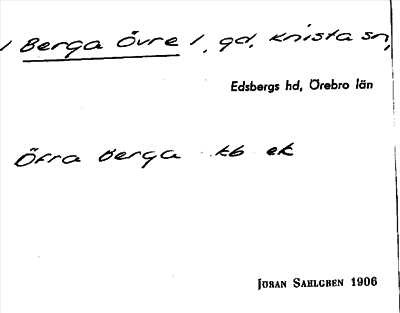 / Berga Övre /, gd, Knista sn,
Edsbergs hd, Örebro län
Öfra Berga kb ek
Jöran Sahlgren 1906